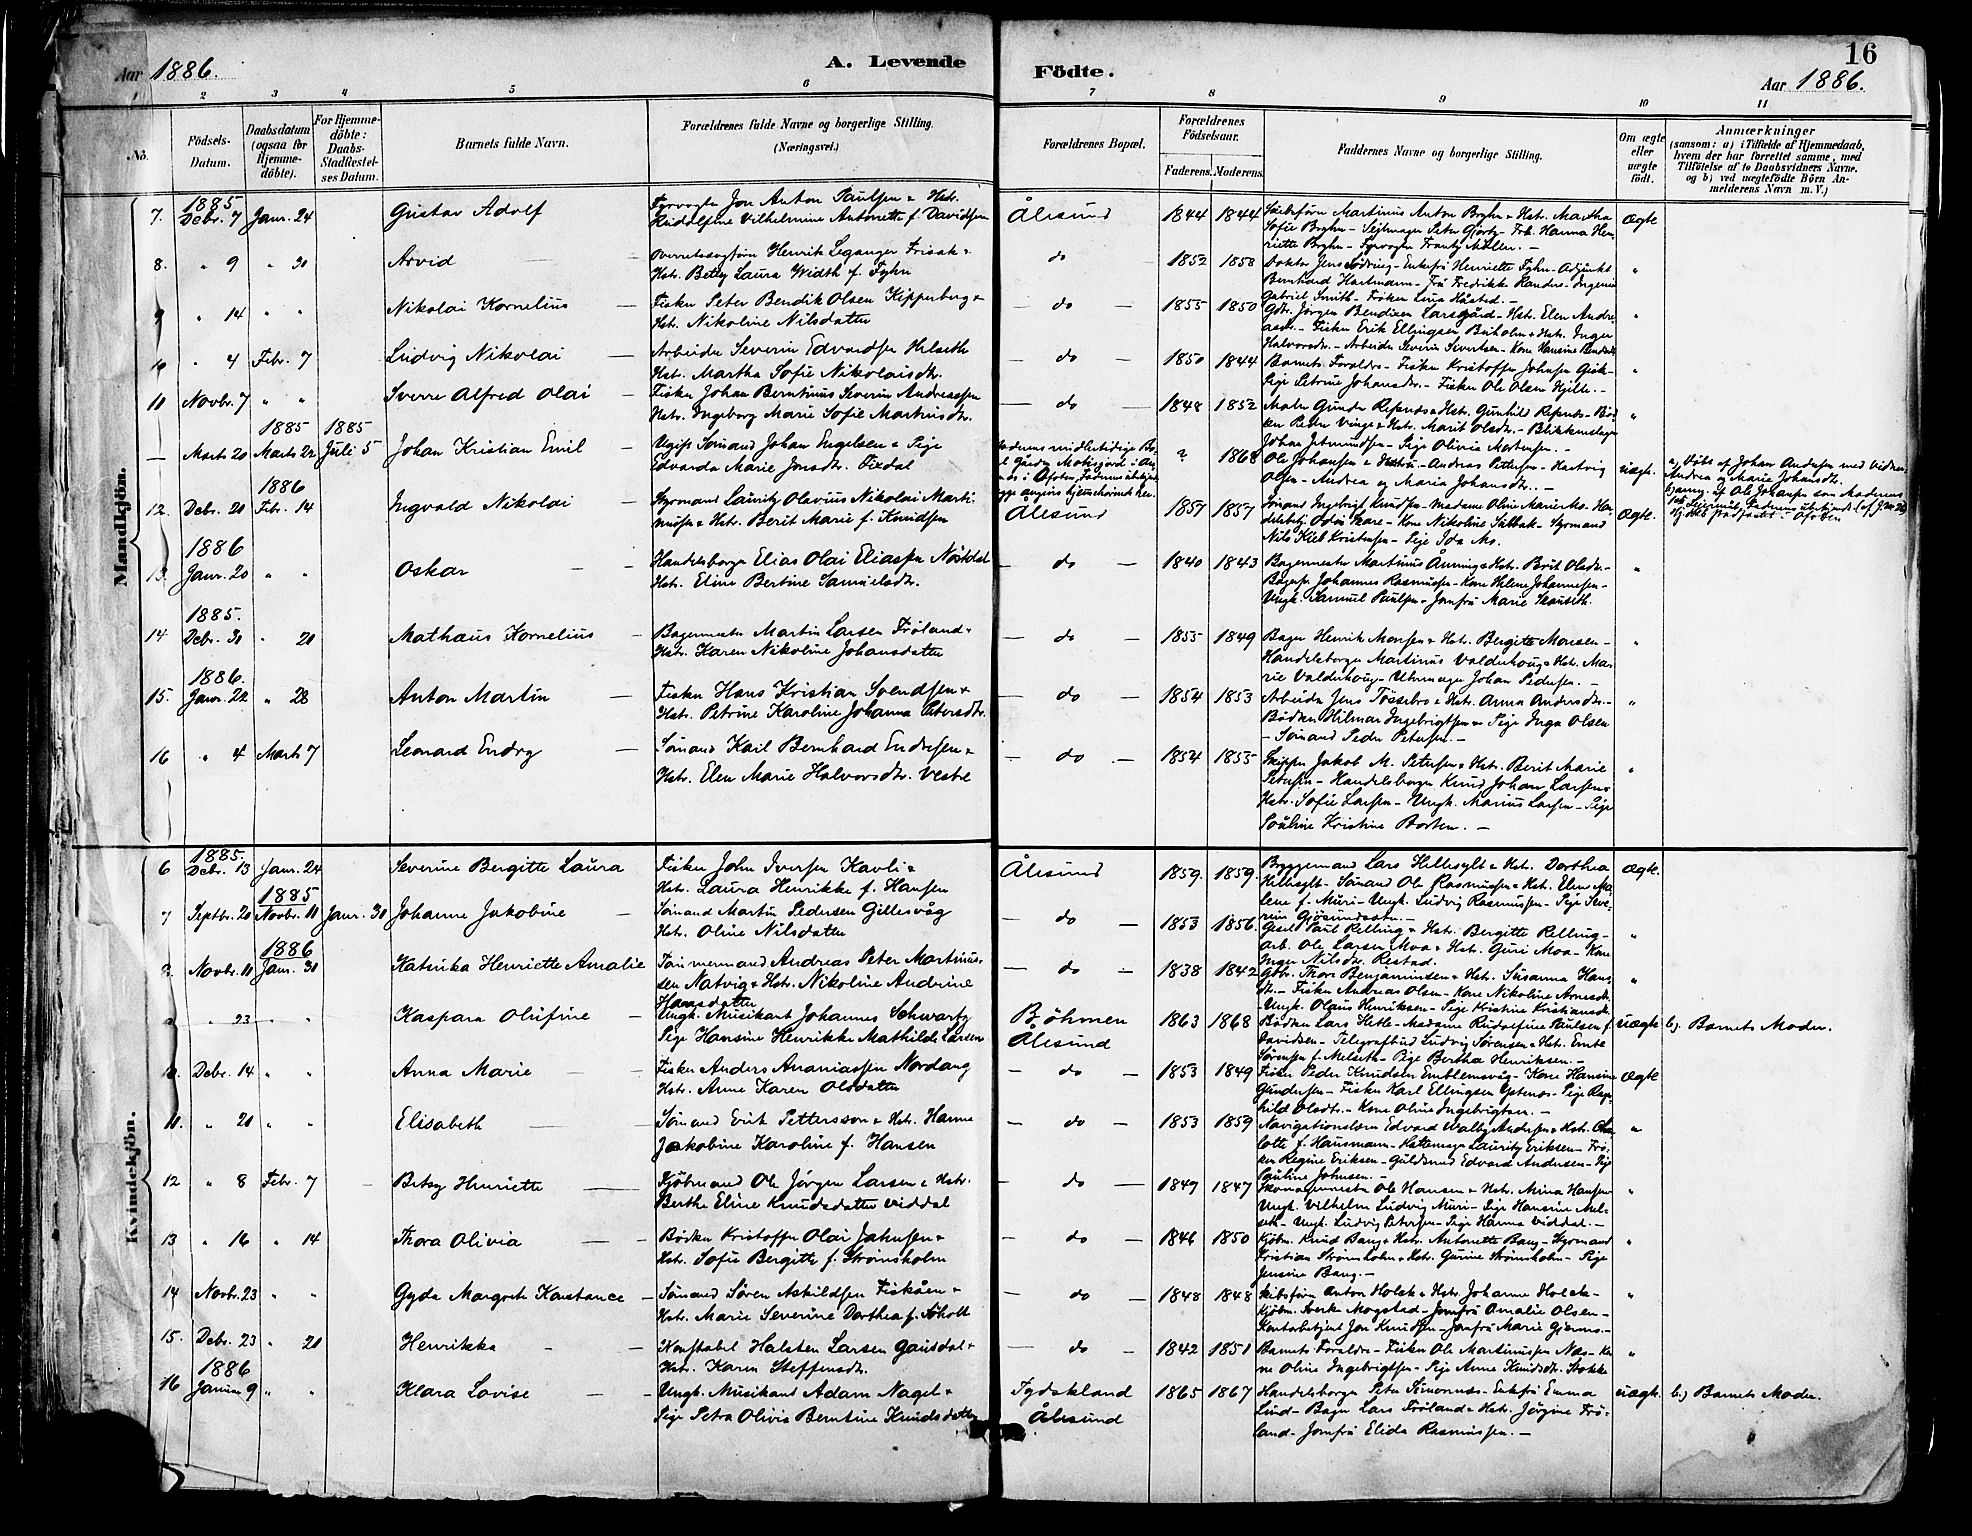 16
Aar 1886.
A. Levende
Födte.
Aar 1886.
1 2 3 4 5 6 7 8 9 10 11
No.
Födsels-Datum.
Daabsdatum (ogsaa for Hjemme-döbte).
For Hjemme-döbte: Daabs-Stadfæstel-ses Datum.
Barnets fulde Navn.
Forældrenes fulde Navne og borgerlige Stilling.
(Næringsvei.)
Forældrenes Bopæl.
Forældrenes Födselsaar.
Faderens. Moderens.
Faddernes Navne og borgerlige Stilling.
Om ægte eller uægte født.
Anmærkninger
(saasom: a) i Tilfælde af Hjemmedaab,
hvem der har forrettet samme, med
Tilföielse af to Daabsvidners Navne.
og b) ved uægtefödte Börn An-
melderens Navn m. V.)
Mandkjön.
1885
7. Debr. 7 Janr. 24 Gustav Adolf
Fyrvogter Jon Anton Paulsen & Hstr.
Rudolfine Vilhelmine Antonette f. Davidsen
Ålesund 1844 1844
Skibsförer Martinus Anton Bryhn & Hstr. Martha
Sofie Bryhn -
Ægte
8. " 9 " 30 Arvid
Overretssagförer Henrik Leganger Frisak &
Hstr. Betsy Laura Width f. Fyhn
do 1852 1858
Doktor Jens Södring - Enkefru Henriette Fyhn - Adjunkt
Bernhard Hartmann - Fru Fredrikke Randers - Ingeniør
Gabriel Smith - Fröken
"
9 " 14 " " Nikolai Kornelius
Fisker Peter Bendik Olsen Kipperberg &
Hstr. Nikoline Nilsdatter
do 1855 1850
Gdr. Jörgen Bendixen Larsgård - Hstr. Elen Andre-
asdr. - Fisker Erik Ellingsen Buholm & Hstr. Inger
Halvorsdr. - Arbeider Severin Sivertsen - Kone Hansine
"
10 " 4 Febr. 7 Ludvig Nikolai
Arbeider Severin Edvardsen Helseth
Hstr. Martha Sofie Nikolaisdr.
do 1850 1844
Barnets Foreldre - Fisker Kristoffer Johnsen
Pige Petrine Johansdr. - Fisker Ole Olsen Hjelle. -
"
11 Novbr. 7 " " Sverre Alfred Olai
Fisker Johan Berntinus Severin Andreassen
Hstr. Ingeborg Marie Sofie Martinsdr.
do 1848 1852
"
1885 1885
- Marts 20 Marts 22 Juli 5 Johan Kristian Emil
Ugift Sømand Johan Engelsen & Pige
Edvarda Marie Jonsdr. Fixdal
? 1868
Ole Johansen & Hustru - Andreas Pettersen - Hartvig
Olsen - Andrea og Maria Johansdr. -
uægte.
a, Döbt af Johan Andersen med Vidner
Andrea og Marie Johansdr.
1886
12. Debr. 20 Febr. 14 Ingvald Nikolai
Styrmand Lauritz Olevius Nikolai Marti-
nusen & Hstr. Berit Marie f. Knudsen
Ålesund 1857 1857
Nils Kiel Kristensen - Pige Ida
Ægte.
1886
13. Janr. 20 " " Oskar
Handelsborger Elias Olai Eliassen Nöstdal
Hstr. Eline Bertine Samuelsdr.
do 1840 1843
Bagermester Martinus Aaning & Hstr. Brit Olsdr. -
Bagersv. Johannes Rasmussen - Kone Helene Johannesen -
Ungk. Samuel Paulsen - Jomfru Marie
"
1885.
14 Debr. 30 " 20 Mathæus Kornelius
Bagermester Martin Larsen Fröland &
Hstr. Karen Nikoline Johansdatter
do 1855 1849
Bager Henrik Monsen & Hstr. Bergitte Monsen -
Handelsborger Martinus Valderhoug & Hstr. Ma-
rie Valderhoug - Uhrmager Johan Pedersen. -
"
1886.
15. Janr. 22 " 28 Anton Martin
Fisker Hans Kristian Svendsen &
Hstr. Petrine Karoline Johanna Petersdr.
do 1854 1853
Arbeider Jens Tössebro & Hstr. Anna Andersdr. -
Bödker Hilmar Ingebrigtsen & Pige Inga Olsen
- Sömand Peder Petersen. -
"
16 " 4 Marts 7 Leonard Endry
Sömand Karl Bernhard Endresen &
Hstr. Elen Marie Halvorsdr. Vestre
do 1854 1855
Skipper Jakob M. Petersen & Hstr. Berit Marie
Petersen - Handelsborger Knud Johan Larsen &
Hstr. Sofie Larsen - Ungk. Marius Larsen - Pige
Pouline Kristine Borten. -
"
Kvindekjön.
1885.
6 Debr. 13 Janr. 24 Severine Bergitte Laura
Fisker John Iversen Kavli &
Hstr. Laura Henrikke f. Hansen
Ålesund 1859. 1859.
Bryggemand Lars Hellesylt & Hstr. Dorthea
Hellesylt - Sömand Ole Rasmussen & Hstr. Elen Ma-
lene f. Muri - Ungk. Ludvig Rasmussen - Pige Seve-
rine
Ægte.
1885
7 Septbr. 20 Novbr. 11 Janr. 30 Johanne Jakobine
Sömand Martin Pedersen Gillesvåg
Hstr. Oline Nilsdatter
do 1853 1856.
Gjest Paul Relling & Hstr. Bergitte Relling -
Arb. Ole Larsen Moa & Hstr. Guri Moa - Kone
Inger Nilsdr. Restad.
"
1886
8. Novbr. 11 Janr. 31 Katinka Henriette Amalie
Tömmermand Andreas Peter Martinus-
sen Natvig & Hstr. Nikoline Andrine
Hansdatter
do 1838 1842
Gbr. Thore Benjaminsen & Hstr. Susanna Hans-
dr. - Fisker Andreas Olsen - Kone Nikoline Arnesdr.
Ungk. Olaus Henriksen - Pige Kristine Kristiansdr.
"
9 " 23 " " Kaspara Olufine
Ungk. Musikant Johannes Schwartz
Pige Hansine Henrikke Mathilde Larsen
Böhmen
Ålesund
1863 1868
Bödker Lars Hetle - Madame Rudolfine Paulsen f.
Davidsen - Telegrafbud Ludvig Sörensen & Hstr. Ernte
Sörensen f. Melseth - Pige Bertha Henriksen. -
uægte b). Barnets Moder.
10. Debr. 14 " " Anna Marie
Fisker Anders Ananiassen Nordang
Hstr. Anne Karen Olsdatter
do 1853 1849
Fisker Peder Knudsen Emblemsvåg - Kone Hansine
Gundersen - Fisker Karl Ellingsen Ystenes - Pige Rag-
hild Olsdr. - Kone Oline Ingebrigtsen. -
Ægte
11. " 20 " " Elisabeth
Sömand Erik Pettersson & Hstr. Hanna
Jakobine Karoline f. Hansen
do 1853 1859
Navigationslærer Edvard Walby Andersen & Hstr. Char-
lotte f. Hausmann - Hattemager Lauritz Eriksen - Frö-
ken Regine Eriksen - Guldsmed Edvard Andersen - Pige
Pauline Johnsen. -
"
12 " 8 Febr. 7 Betsy Henriette
Kjöbmand Ole Jörgen Larsen & Hstr.
Berthe Eline Knudsdatter Viddal
do 1849 1847
Skomagermester Ole Hansen & Hstr. Mina Hansen
Ungk. Vilhelm Ludvig Muri - Pige Hansine Mel-
seth - Ungk. Ludvig Petersen - Pige Hanna Viddal. -
"
13 " 16 " 14 Thora Olivia
Bödker Kristoffer Olai Johnsen &
Hstr. Sofie Bergitte f. Strömsholm
do 1846 1850
Kjöbm. Knud Bang & Hstr. Antonette Bang - Styrmand
Kristian Strömsholm & Hstr. Gurine Strömsholm - Pige
Jensine Bang. -
"
14 Novbr. 23 " " Gyda Margreth Konstance
Sömand Sören Askildsen Fiskåen &
Hstr. Marie Severine Dorthea f. Söholt
do 1848 1848
Skibsförer Anton Holck & Hstr. Johanne Holck -
Kjöbm. Sverke Mogstad - Jomfru Amalie Olsen -
Kontorbetjent Jon Knudsen - Jomfru Marie
"
15. Debr. 23 " 20 Henrikka
Konstabel Halsten Larsen Gaisdal &
Hstr. Karen Steffensdr.
do 1842 1851
Barnets Foreldre - Fisker Ole Martinussen Næs - Ko-
ne Oline Ingebrigtsen - Pige Anne Knudsdr. Stokke
"
1886
16 Januar 9 " " Klara Lovise
Ungk. Musikant Adam Nagel &
Pige Petra Olivia Berntine Knudsdatter
Tydskland
Ålesund
1865 1867
Handelsborger Peter Simonnæs - Enkefru Emma
Lund - Bager Lars Fröland & Hstr. Jörgine Frö-
land - Jomfru Elida Rasmussen. -
uægte. b.) Barnets Moder.